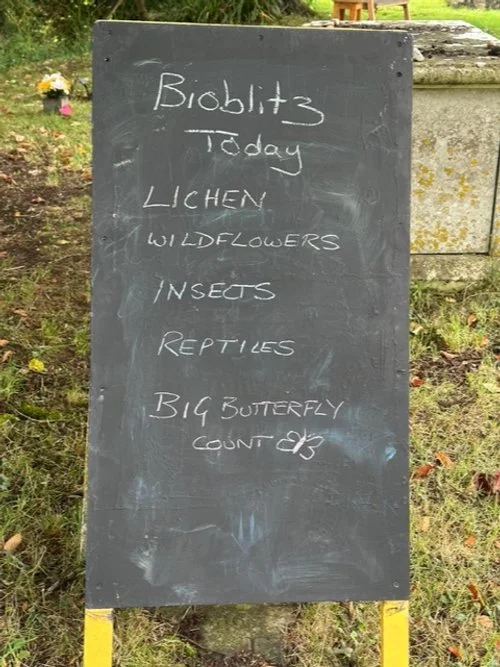 Bioblitz
Today
LICHEN
WILDFLOWERS
INSECTS
REPTILES
BIG BUTTERFLY
COUNT